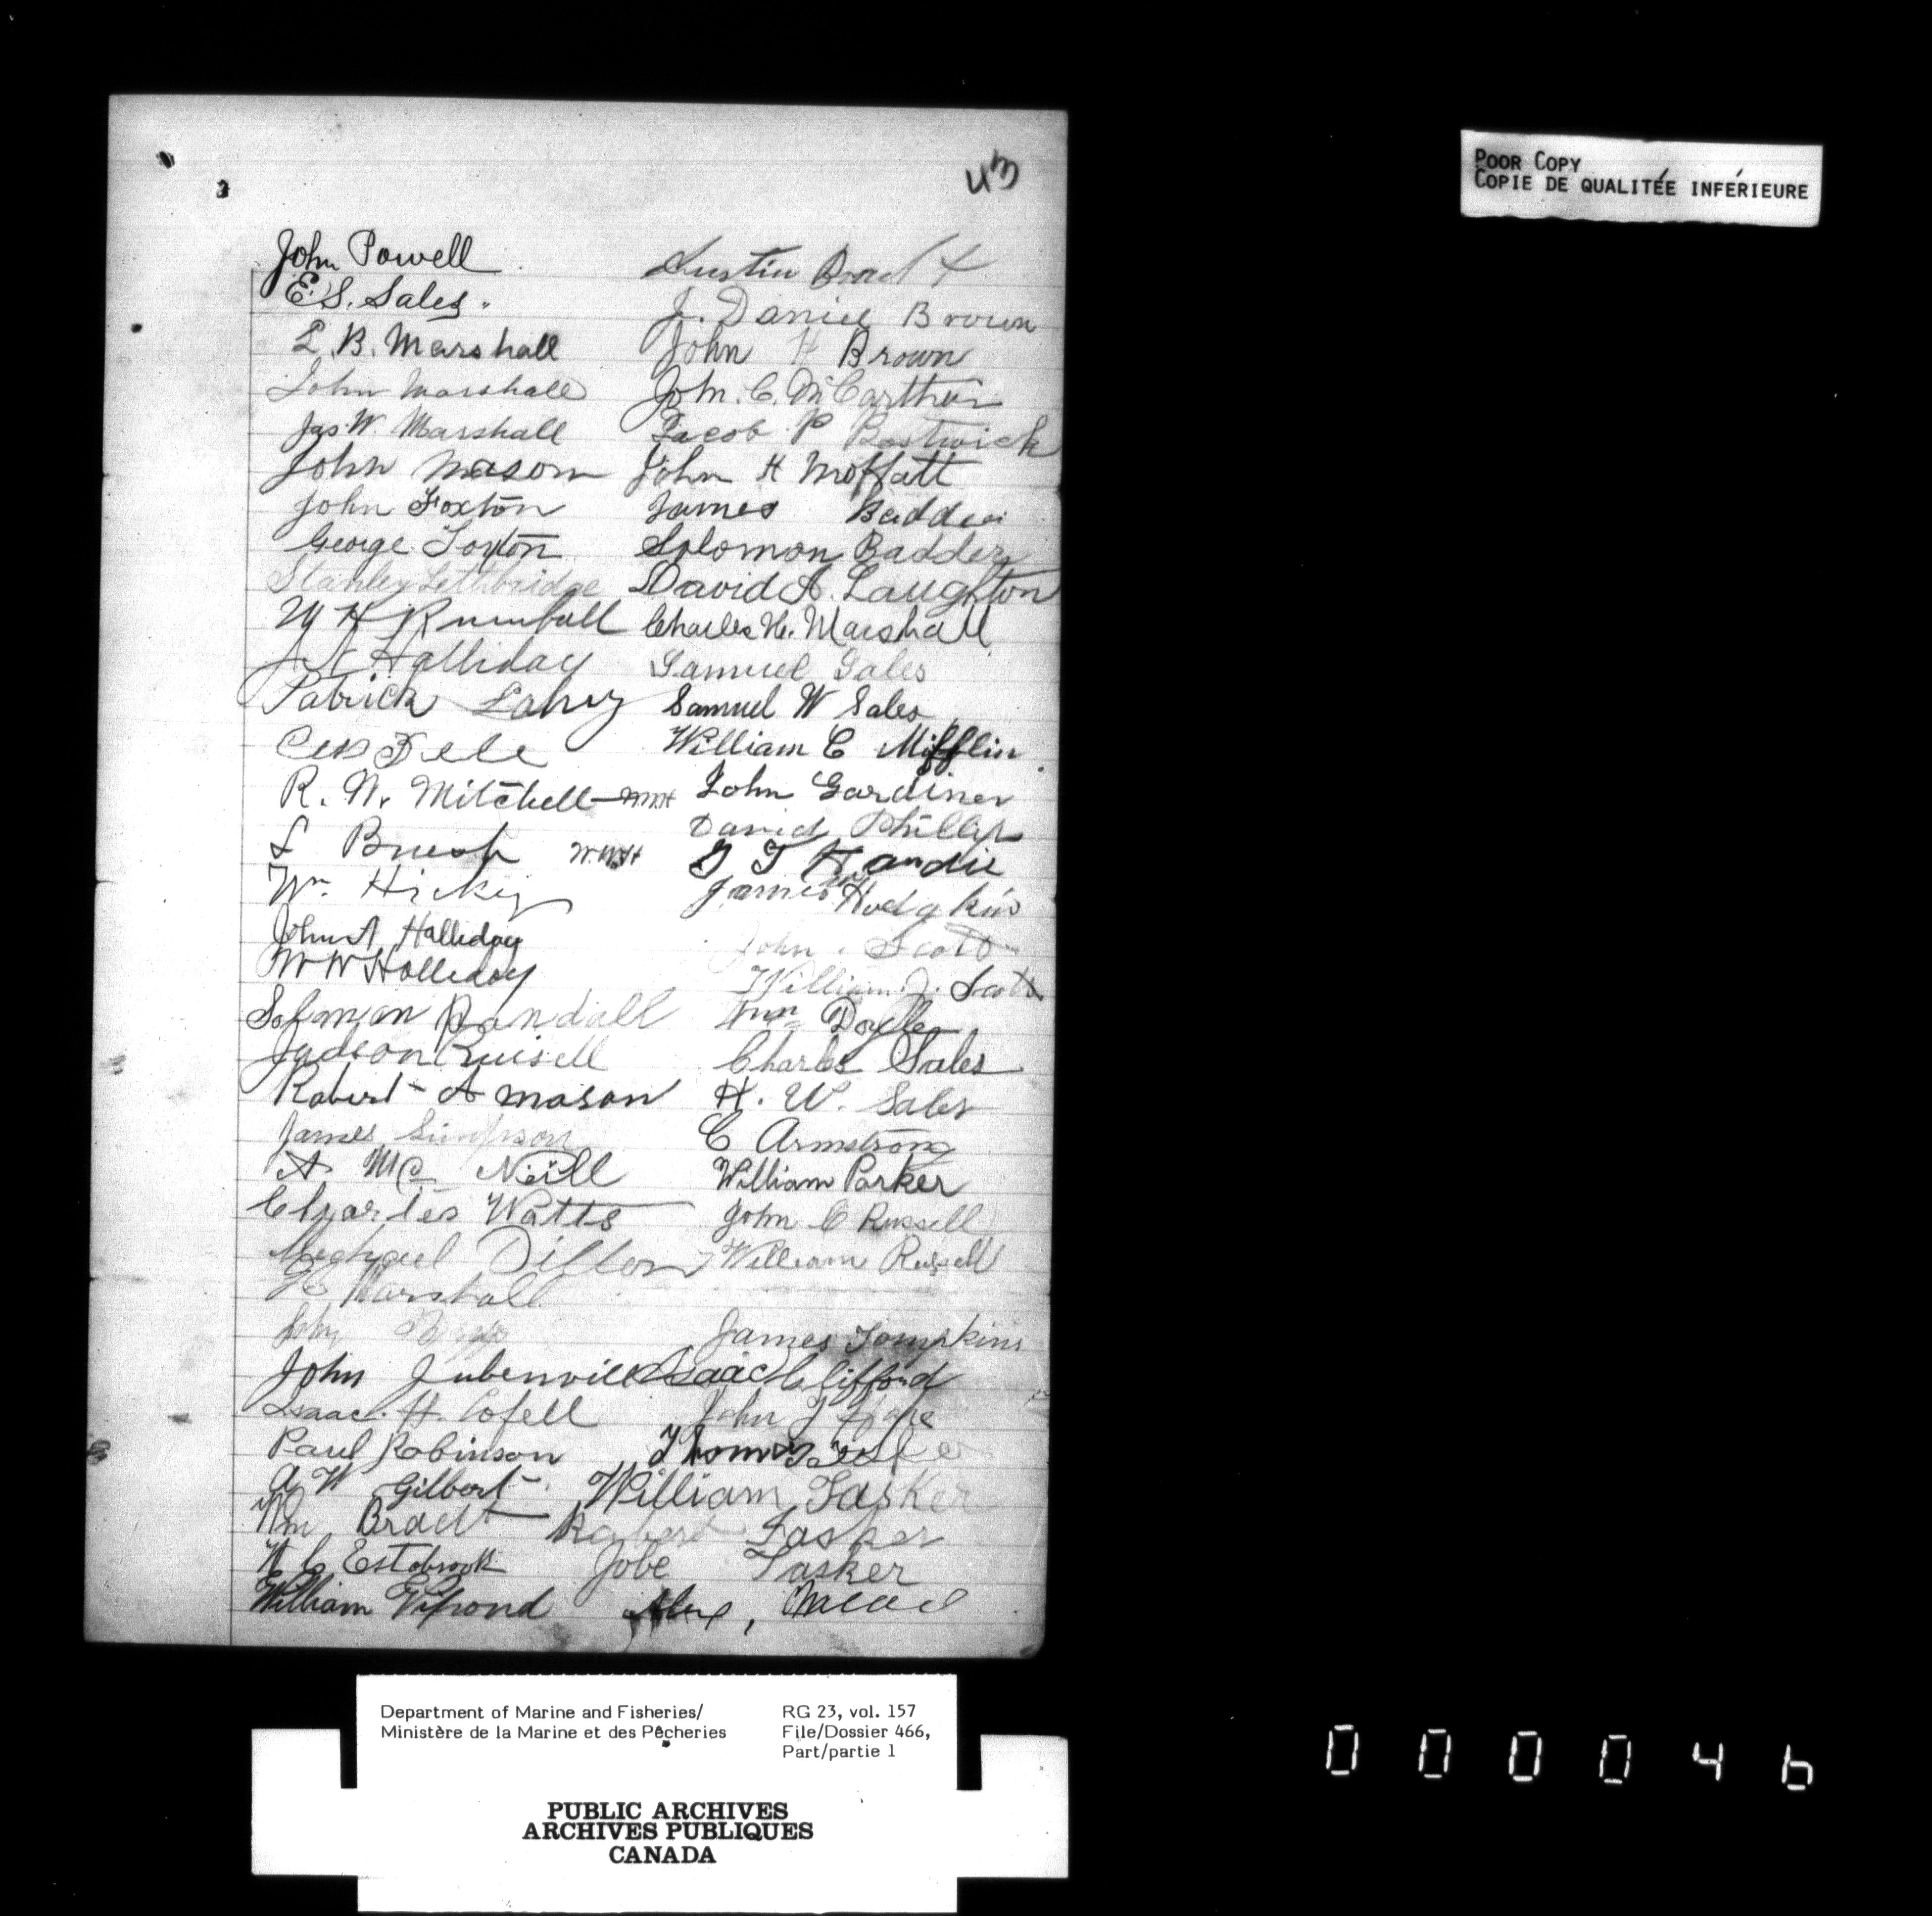 43
POOR COPY
COPIE DE QUALITÉE INFÉRIEURE
John Powell
E.S. Sales
L. B. Marshall
John Marshall
Jas. W. Marshall
John Mason
John Foxton
George Foxton
Stanley Lethbridge
W H Rumball
Halliday
Patrick Lahey
R. W. Mitchell
S Brush W.W.H
Wm. Hickey
John A Halliday
W W Halliday
Solomon Randall
Judson Russell
Robert A Mason
James Simpson
A Mc Neill
Charles Watts
Michael Dillon
Marshall
John
John Jubenville
Isaac. H. Cofell
Paul Robinson
A W Gilbert
Wm Bradt
W C Estabrook
William Vipond
Austin Bradt
J. Daniel Brown
John H Brown
John. C. McCarthur
Jacob P Bostwick
John H Moffatt
James Badder
Solomon Badder
David A. Laughton
Charles H. Marshall
Samuel Sales
Samuel W Sales
William C Mifflin
John Gardiner
David Phillips
James Hodgkin
John Scott
William. J. Scott
Wm Doyle
Charles Sales
H. W. Sales
C Armstrong
William Parker
John C Russell
William Russell
James Tompkins
Isaac Clifford
John
Thomas
William Tasker
Robert Tasker
Jobe Tasker
Alex, Mead
Department of Marine and Fisheries/
Ministère de la Marine et des Pêcheries
RG 23, vol. 157
File/Dossier 466,
Part/partie 1
PUBLIC ARCHIVES
ARCHIVES PUBLIQUES
CANADA
000046